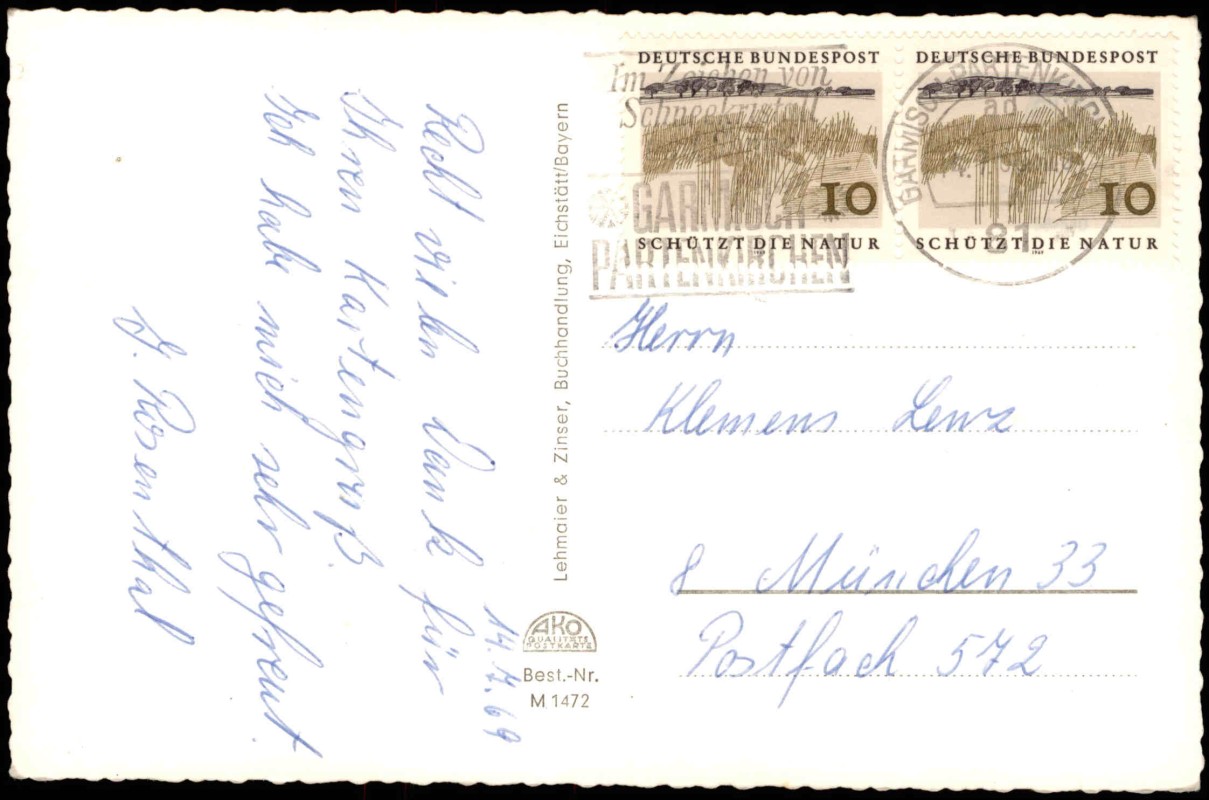 14.7.69
Recht vielen Dank für
Ihren Kartengruß
Ich habe mich sehr gefreut
J. Rosenthal
Lehmaier & Zinser, Buchhandlung, Eichstätt/Bayern
AKO
QUALITÄTS
POSTKARTE
Best.-Nr.
M 1472
Im Zeichen von
Schneekristall
GARMISCH
PARTENKIRCHEN
DEUTSCHE BUNDESPOST
10
SCHÜTZT DIE NATUR
1969
DEUTSCHE BUNDESPOST
10
SCHÜTZT DIE NATUR
1969
GARMISCH-PARTENKIRCHEN
ad
81
Herrn
Klemens Lenz
8 München 33
Postfach 572